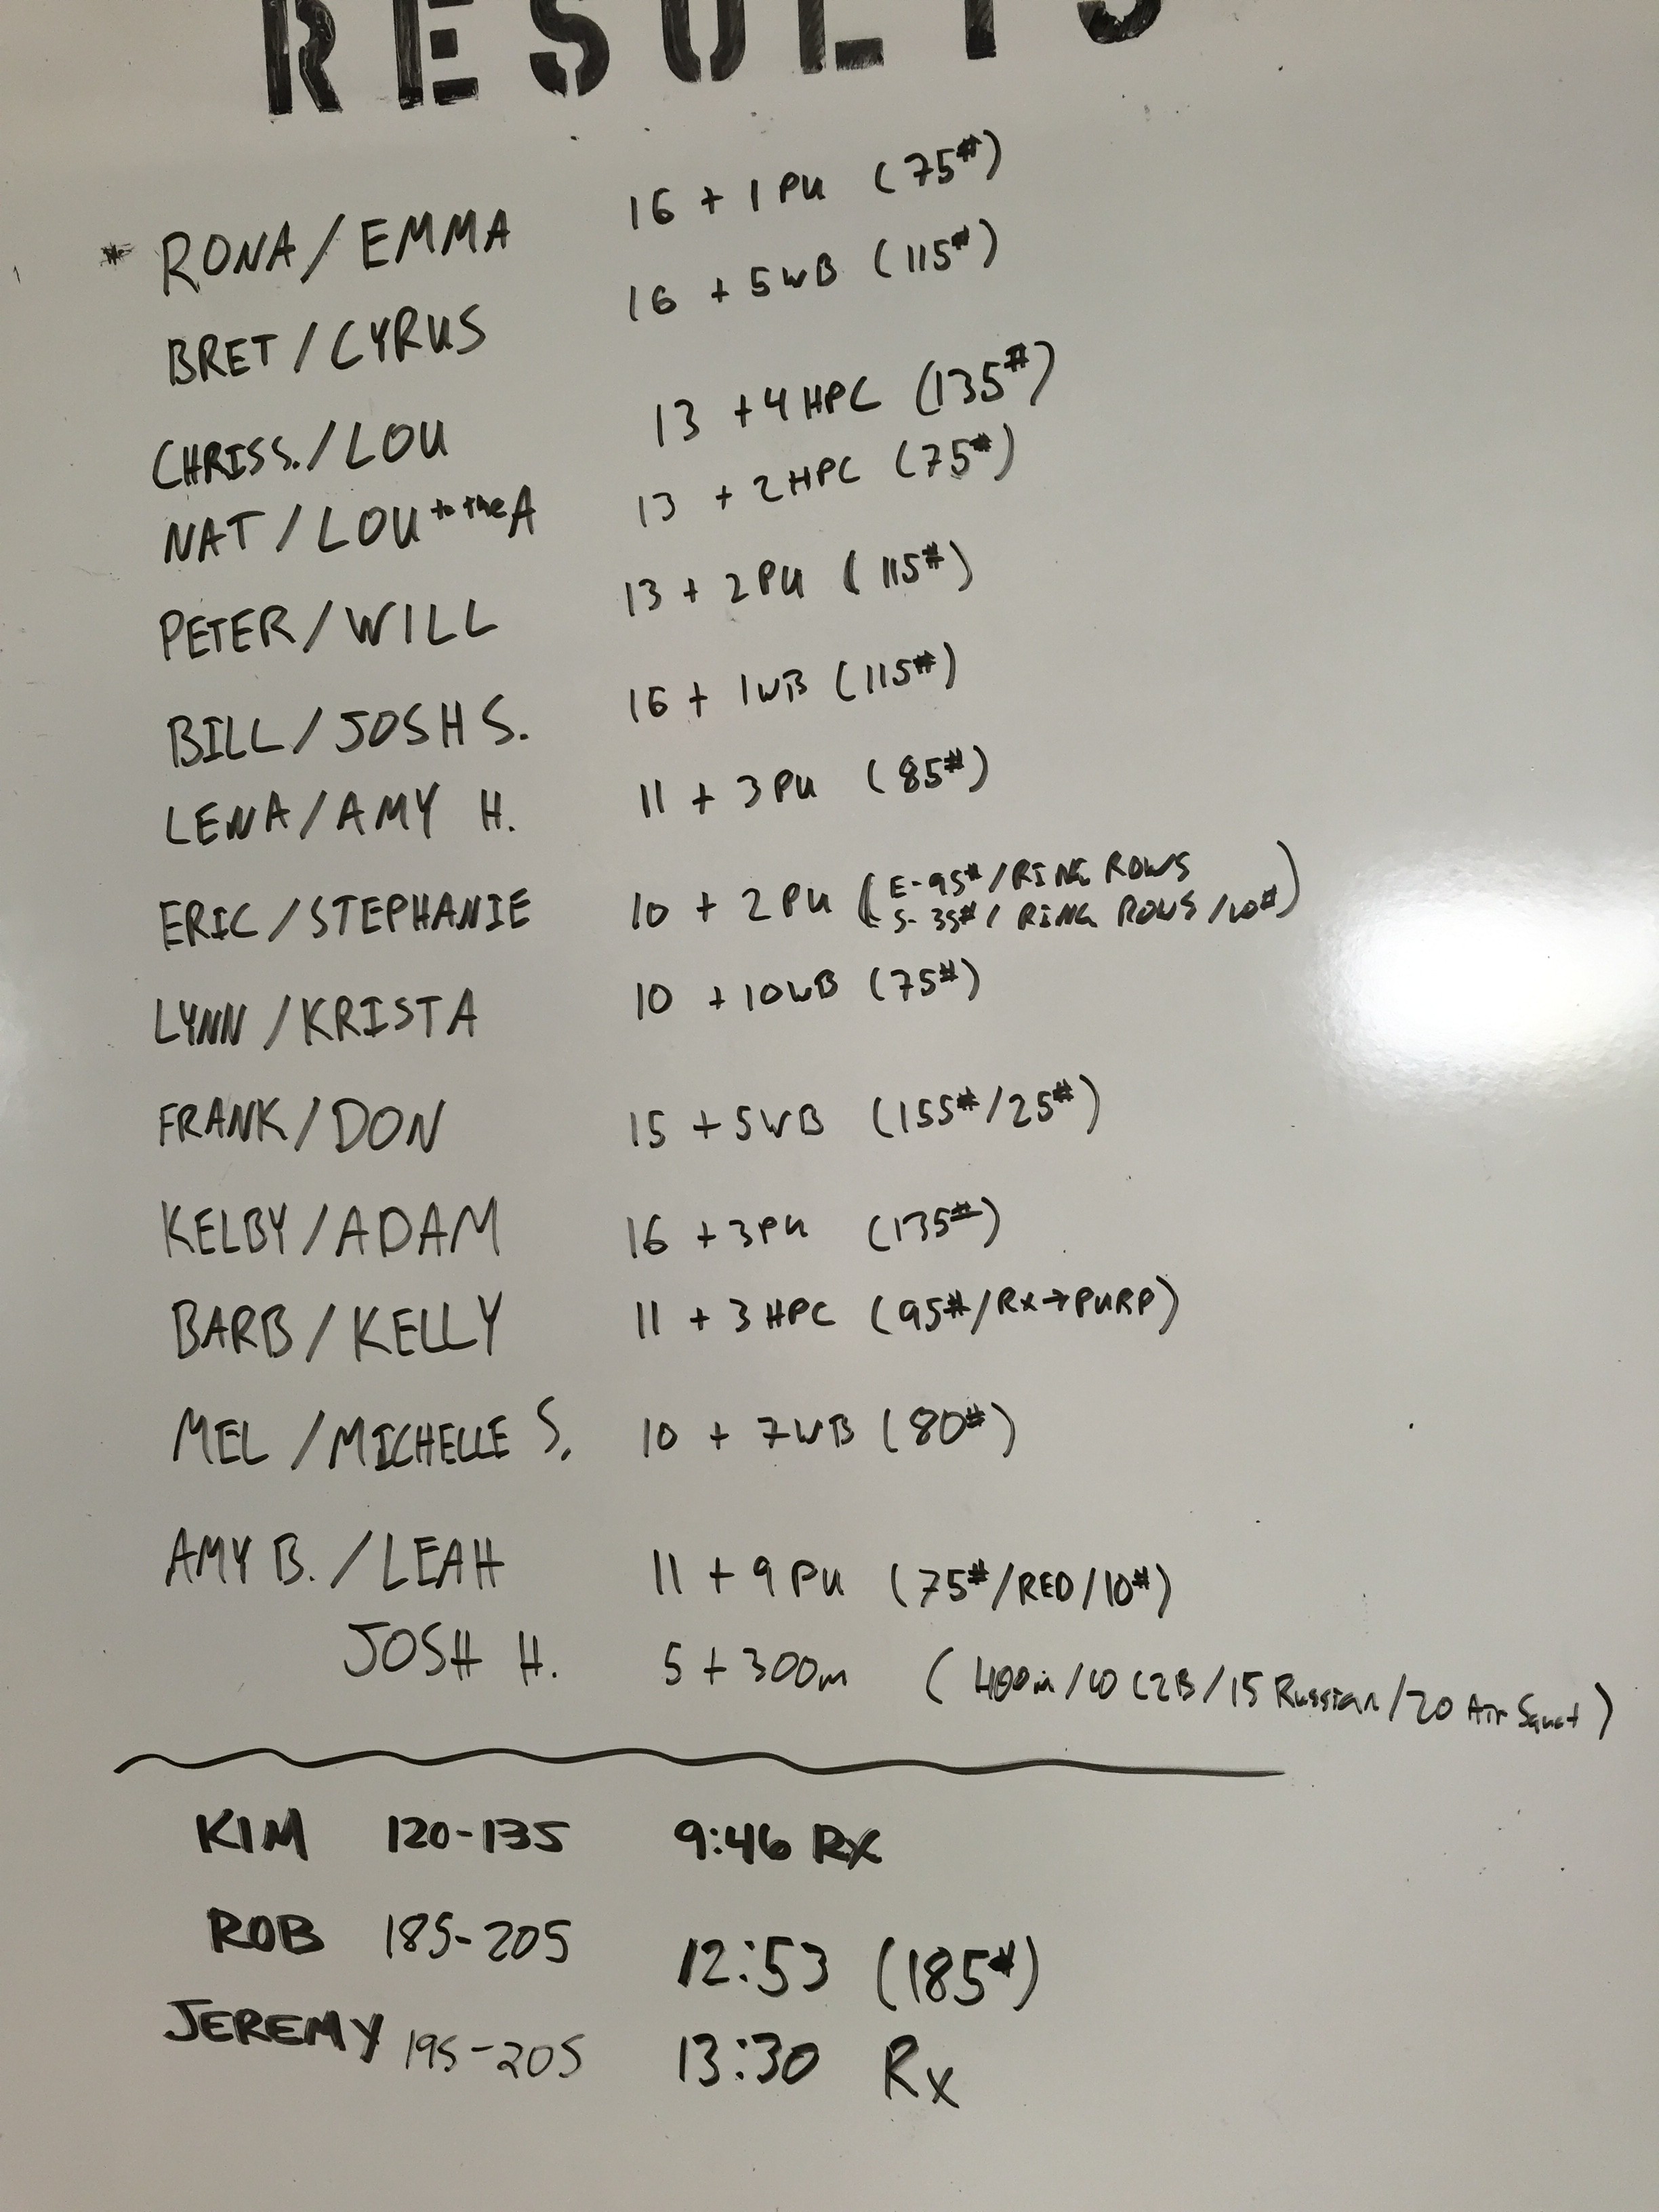 RESULTS
* RONA/EMMA 16 + 1 PU (75#)
BRET/CYRUS 16 + 5WB (115#)
CHRISS./LOU 13 + 4 HPC (135#)
NAT/LOU to the A 13 + 2HPC (75#)
PETER/WILL 13 + 2PU (115#)
BILL/JOSH S. 16 + 1WB (115#)
LENA/AMY H. 11 + 3PU (85#)
ERIC/STEPHANIE 10 + 2PU (E-95#/RING ROWS
S-35#/RING ROWS/10#)
LYNN/KRISTA 10 + 10WB (75#)
FRANK/DON 15 + 5WB (155#/25#)
KELBY/ADAM 16 + 3PU (135#)
BARB/KELLY 11 + 3 HPC (95#/Rx→PURP)
MEL/MICHELLE S. 10 + 7WB (80#)
AMY B./LEAH 11 + 9 PU (75#/RED/10#)
JOSH H. 5 + 300m (400m/10 C2B/15 Russian/20 Air Squat)
KIM 120-135 9:46 Rx
ROB 185-205 12:53 (185#)
JEREMY 195-205 13:30 Rx